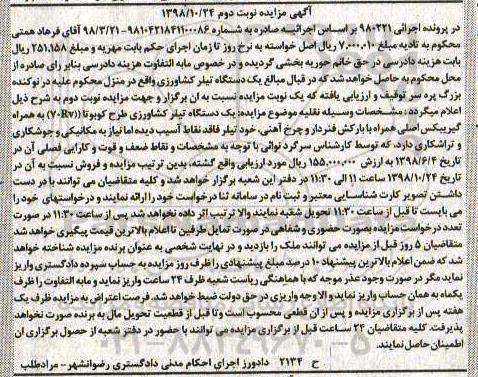 آگهی مزایده نوبت دوم ۱۳۹۸/۱۰/۲۴
در پرونده اجرائی ۹۸۰۲۲۱ بر اساس اجرائیه صادره به شماره ۹۸۱۰۴۲۱۸۴۱۱۰۰۰۸۶-۹۸/۳/۲۱ آقای فرهاد همتی
محکوم به تادیه مبلغ ۷,۰۰۰,۰۱۰ ریال اصل خواسته به نرخ روز تا زمان اجرای حکم بابت مهریه و مبلغ ۲۵۱,۱۵۸ ریال
بابت هزینه دادرسی در حق خانم حوریه بخشی گردیده و در خصوص مابه التفاوت هزینه دادرسی بنابر رای صادره از
محل محکوم به حاصل خواهد شد که در قبال مبالغ یک دستگاه تیلر کشاورزی واقع در منزل محکوم علیه در نوکنده
بزرگ پره سر توقیف و ارزیابی یافته که یک نوبت مزایده نسبت به ان برگزار و جهت مزایده نوبت دوم به شرح ذیل
اعلام میگردد: مشخصات وسیله نقلیه موضوع مزایده: یک دستگاه تیلر کشاورزی طرح کوبوتا ((۷۰Rv) به همراه
گیربیکس اصلی همراه با بارکش فنردار و چرخ آهنی، خود تیلر فاقد نقاط آسیب دیده اما نیاز به مکانیکی و جوشکاری
و تراشکاری دارد، که توسط کارشناس سرگرد نوائی با توجه به مشخصات و نقاط ضعف و قوت و کارایی فصلی آن در
تاریخ ۱۳۹۸/۶/۴ به ارزش ۱۵۵,۰۰۰,۰۰۰ ریال مورد ارزیابی واقع گشته، بدین ترتیب مزایده و فروش نسبت به آن در
تاریخ ۱۳۹۸/۱۰/۲۴ ساعت ۱۱ الی ۱۱:۳۰ در دفتر این شعبه برگزار خواهد شد و کلیه متقاضیان می توانند با در دست
داشتن تصویر کارت شناسایی معتبر و ثبت نام در سامانه ثنا درخواست خود را ارائه نمایند و درخواستهای خود را
می بایست تا قبل از ساعت ۱۱:۳۰ تحویل شعبه نمایند والا ترتیب اثر داده نخواهد شد پس از ساعت ۱۱:۳۰ در صورت
تعدد درخواست مزایده بصورت حضوری و شفاهی در صورت تمایل طرفین تا اعلام بالاترین قیمت پیگیری خواهد شد
متقاضیان ۵ روز قبل از مزایده می توانند ملک را بازدید و در نهایت شخصی به عنوان برنده مزایده شناخته خواهد
شد که ضمن اعلام بالاترین پیشنهاد ۱۰ درصد مبلغ پیشنهادی را ظرف روز مزایده به حساب سپرده دادگستری واریز
نماید مگر در صورت وجود عذر موجه که با هماهنگی ریاست شعبه ظرف ۲۴ ساعت واریز نماید و مابه التفاوت را ظرف
یکماه به همان حساب واریز نماید و الا وجه واریزی در حق دولت ضبط خواهد شد. فرصت اعتراض به مزایده ظرف یک
هفته پس از برگزاری مزایده و پس از ان قطعی محسوب است و تا قبل از قطعیت تحویل مال به برنده صورت نخواهد
پذیرفت. کلیه متقاضیان ۲۴ ساعت قبل از برگزاری مزایده می توانند با حضور در دفتر شعبه از حصول برگزاری ان
اطمینان حاصل نمایند.
ح ۲۱۳۴ دادورز اجرای احکام مدنی دادگستری رضوانشهر- مرادطلب
۰۲۱-۸۸۳۴۹۶۷۰-۵